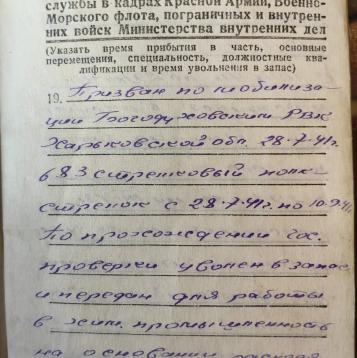 службы в кадрах Красной Армии, Военно-
Морского флота, пограничных и внутрен-
них войск Министерства внутренних дел
(Указать время прибытия в часть, основные
перемещения, специальность, должностные ква-
лификации и время увольнения в запас)
19. Призван по мобилиза-
ции Богодуховским РВК
Харьковской обл. 28.7.41г.
в 83 стрелковый полк
стрелок с 28.7.41г. по 10.9.41г
По прохождении гос.
проверки уволен в запас
и передан для работы
в хим. промышленность
на основании